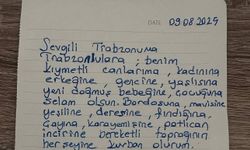 DATE 09.08.2025
Sevgili Trabzonuma
Trabzonlulara; benim
kıymetli canlarıma, kadınına
erkeğine, gencine, yaşlısına
yeni doğmuş bebeğine, çocuğuna
selam olsun. Bordosuna, mavisine
yeşiline, deresine, fındığına,
çayına, karayemişine, patlıcan
incirine bereketli toprağının
her şeyine kurban olurum.